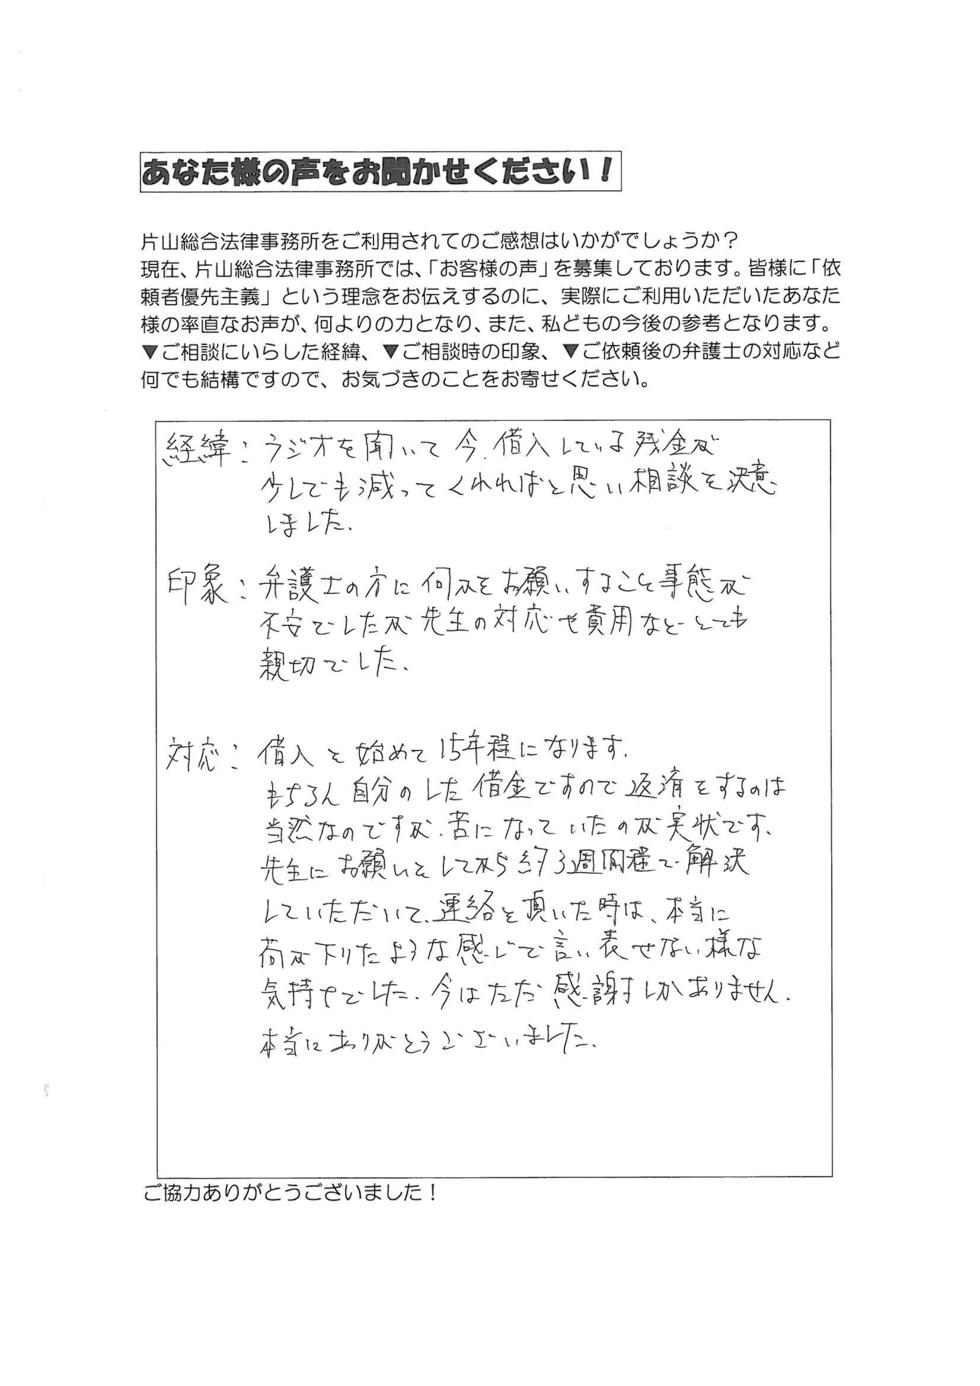 あなた様の声をお聞かせください！
片山総合法律事務所をご利用されてのご感想はいかがでしょうか？
現在、片山総合法律事務所では、「お客様の声」を募集しております。皆様に「依
頼者優先主義」という理念をお伝えするのに、実際にご利用いただいたあなた
様の率直なお声が、何よりの力となり、また、私どもの今後の参考となります。
▼ご相談にいらした経緯、▼ご相談時の印象、▼ご依頼後の弁護士の対応など
何でも結構ですので、お気づきのことをお寄せください。
経緯：ラジオを聞いて今、借入している残金が
少しでも減ってくれればと思い相談を決意
しました.
印象：弁護士の方に何かをお願いすること事態が
不安でしたが先生の対応や費用などとても
親切でした.
対応：借入を始めて15年程になります.
もちろん自分のした借金ですので返済をするのは
当然なのですが、苦になっていたのが実状です、
先生にお願いをしてから約3週間程で解決
していただいて、連絡を頂いた時は、本当に
荷が下りたような感じで言い表せない様な
気持ちでした.今はただ感謝しかありません.
本当にありがとうございました.
ご協力ありがとうございました！